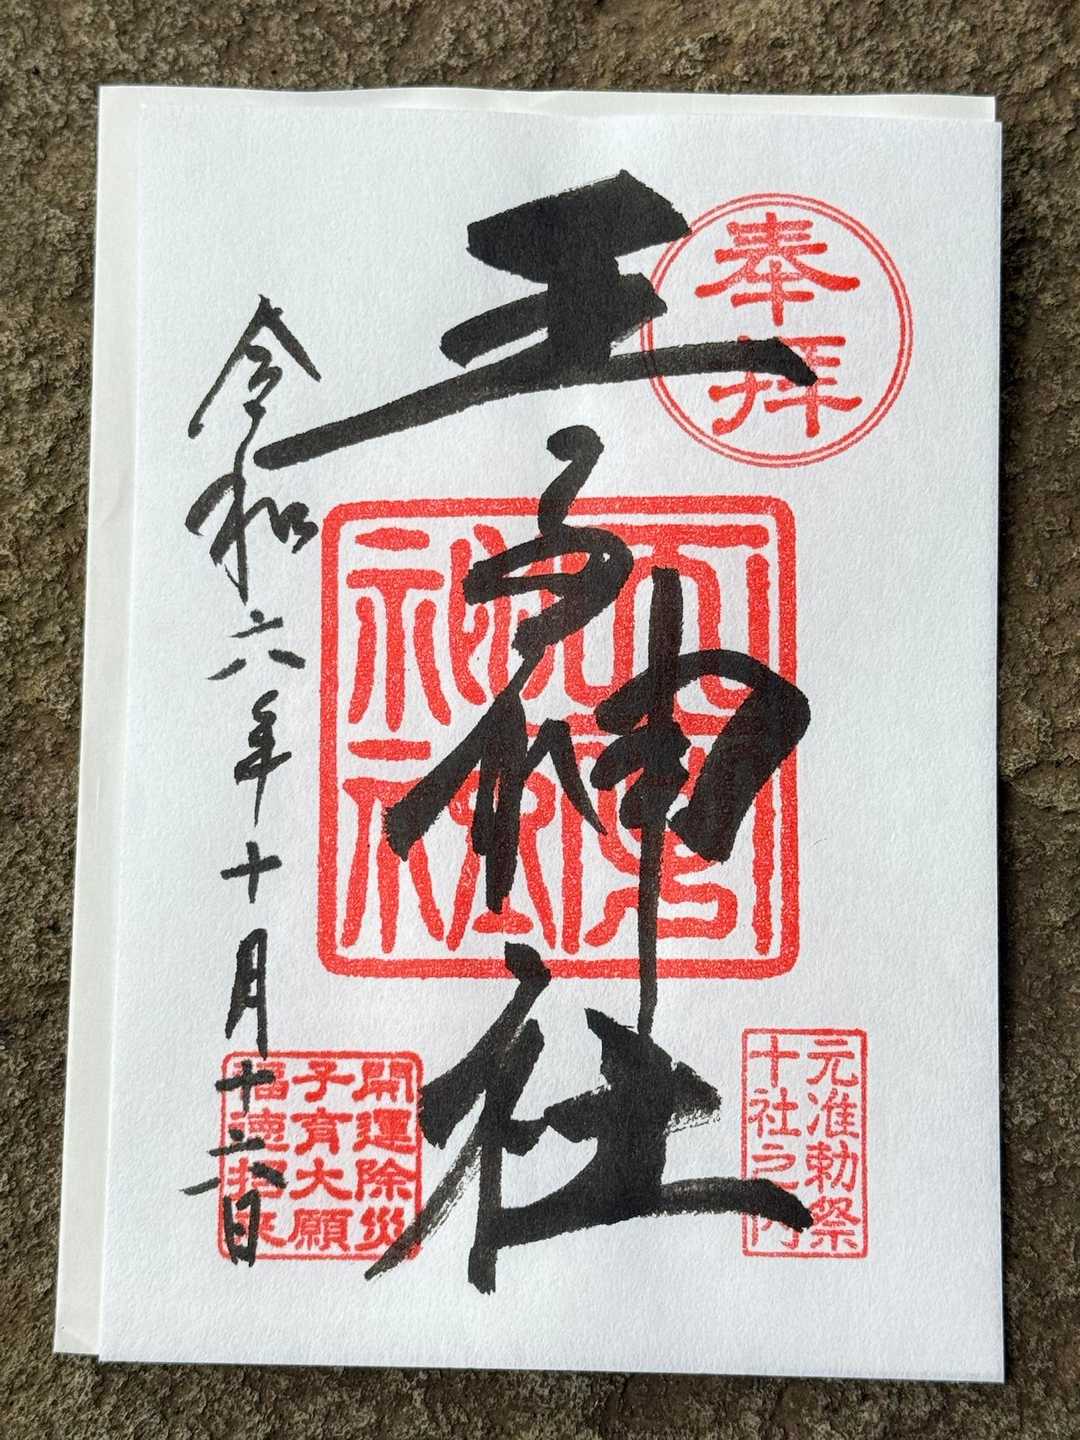 奉拝
王子神社
元准勅祭
十社之内
開運除災
子育大願
福徳招来
令和六年十月十六日